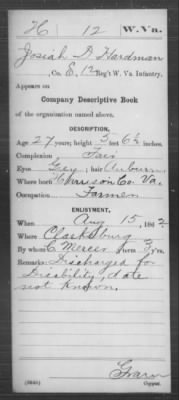 H 12 W. Va.
Josiah D. Hardman
Co. E, 12 Reg't W. Va. Infantry.
Appears on
Company Descriptive Book
of the organization named above.
DESCRIPTION.
Age 27 years; height 5 feet 6½ inches.
Complexion Fair
Eyes Grey; hair Auburn
Where born Harrison Co. Va.
Occupation Farmer
ENLISTMENT.
When Aug 15, 1862
Where Clarksburg
By C. Mercer; term 3 y'rs.
Remarks: Discharged for
Disability, date
not known.
Copyist.